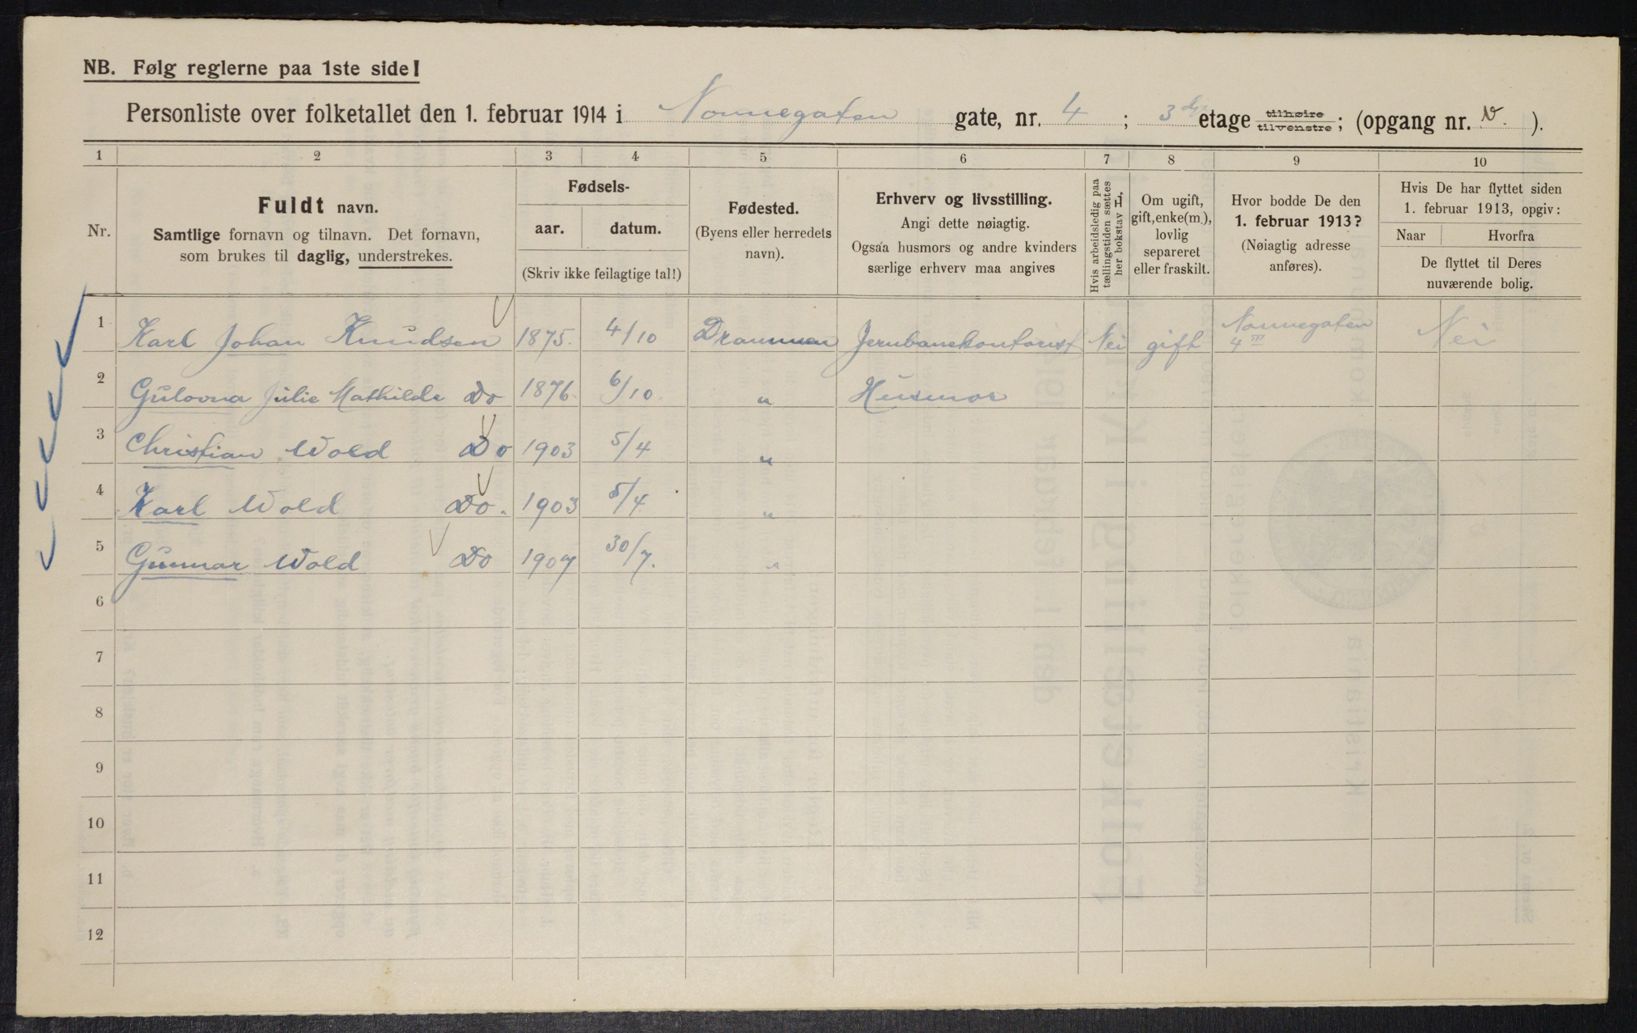 NB. Følg reglerne paa 1ste side!
Personliste over folketallet den 1. februar 1914 i Nonnegaten gate, nr. 4 ; 3die etage tilhøire tilvenstre ; (opgang nr. V. ).
1 2 3 4 5 6 7 8 9 10
Nr.
Fuldt navn.
Samtlige fornavn og tilnavn. Det fornavn,
som brukes til daglig, understrekes.
Fødsels-
aar. datum.
(Skriv ikke feilagtige tal!)
Fødested.
(Byens eller herredets
navn).
Erhverv og livsstilling.
Angi dette nøiagtig.
Ogsaa husmors og andre kvinders
særlige erhverv maa angives
Hvis arbeidsledig paa
tællingstiden sættes
her bokstav L.
Om ugift,
gift, enke(m.),
lovlig
separeret
eller fraskilt.
Hvor bodde De den
1. februar 1913?
(Nøiagtig adresse
anføres).
Hvis De har flyttet siden
1. februar 1913, opgiv:
Naar Hvorfra
De flyttet til Deres
nuværende bolig.
1 Karl Johan Knudsen 1875. 4/10 Drammen Jernbanekontorist Nei gift Nonnegaten 4 III Nei
2 Gulovna Julie Mathilde Do 1876. 6/10. " Husmor
3 Christian Wold Do 1903 5/4 "
4 Karl Wold Do. 1903 5/4. "
5 Gunnar Wold Do 1907 30/7. "
6
7
8
9
10
11
12